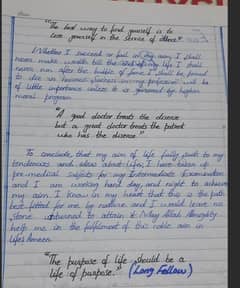 "The best way to find yourself is to
lose yourself in the service of others"
Whether I succeed or fail in my aim, I shall
never make wealth till the end of my life. I shall
never run after the bubble of fame. I shall be proud
to die as known. Success in any profession will be
of little importance unless it is guranted by highest
moral program
"A good doctor treats the disease
but a great doctor treats the patient
who has the disease"
To conclude, that my aim of life fully suits to my
tendencies and ideas about life, I have taken up
pre-medical subjects for my Intermediate Examination
and I am working hard day and night to achieve
my aim. I know in my heart that this is the path
best fitted for me by nature and I would leave no
stone unturned to attain it. May Allah Almighty
help me in the fulfilment of this noble aim in
life. Ameen
"The purpose of life should be a
life of purpose." (Long Fellow)